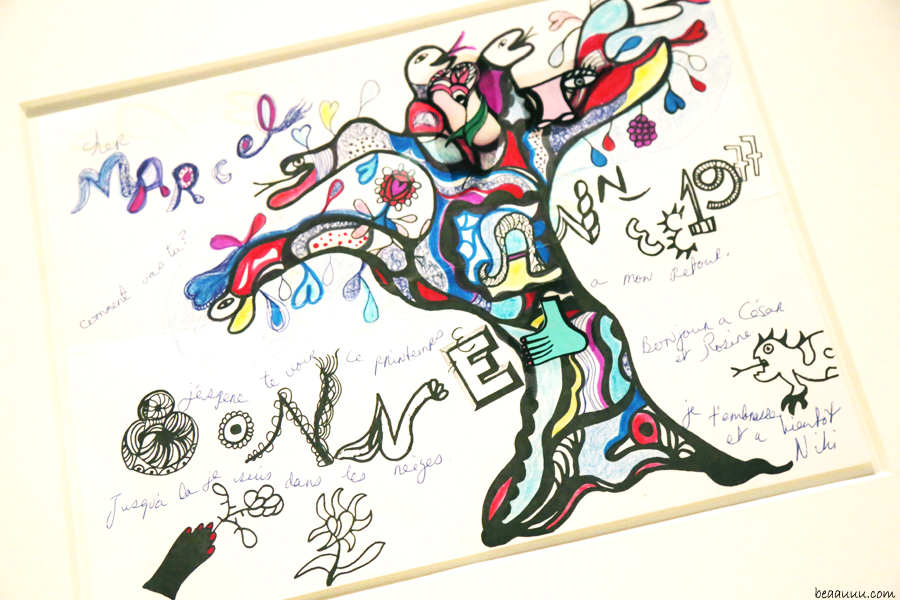 cher
MARCEL
comment vas tu?
j'espère te voir ce printemps
BONNE
ANN
1977
a mon retour.
Jusqu'à là je suis dans les neiges.
Bonjour a César
et Rosine
je t'embrasse
et a bientot
Niki
beaauuu.com